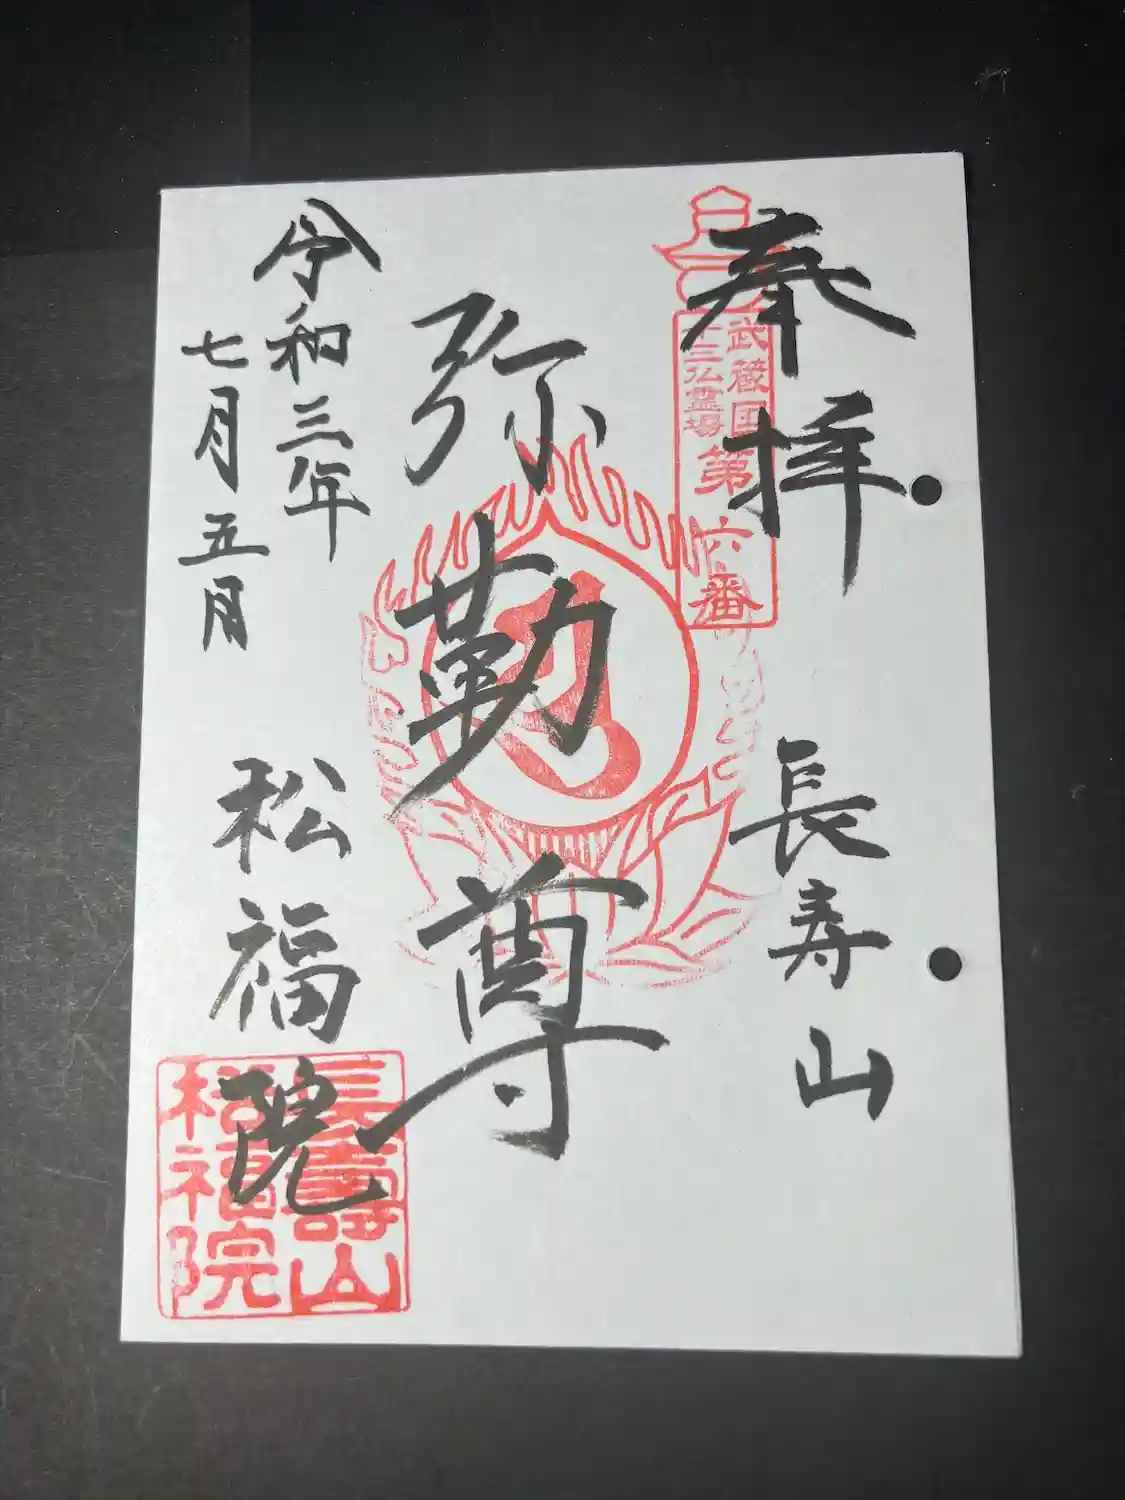 奉拝
武蔵国
十三仏霊場
第六番
長寿山
弥勒尊
令和三年
七月五月
松福院
長壽山
松福院